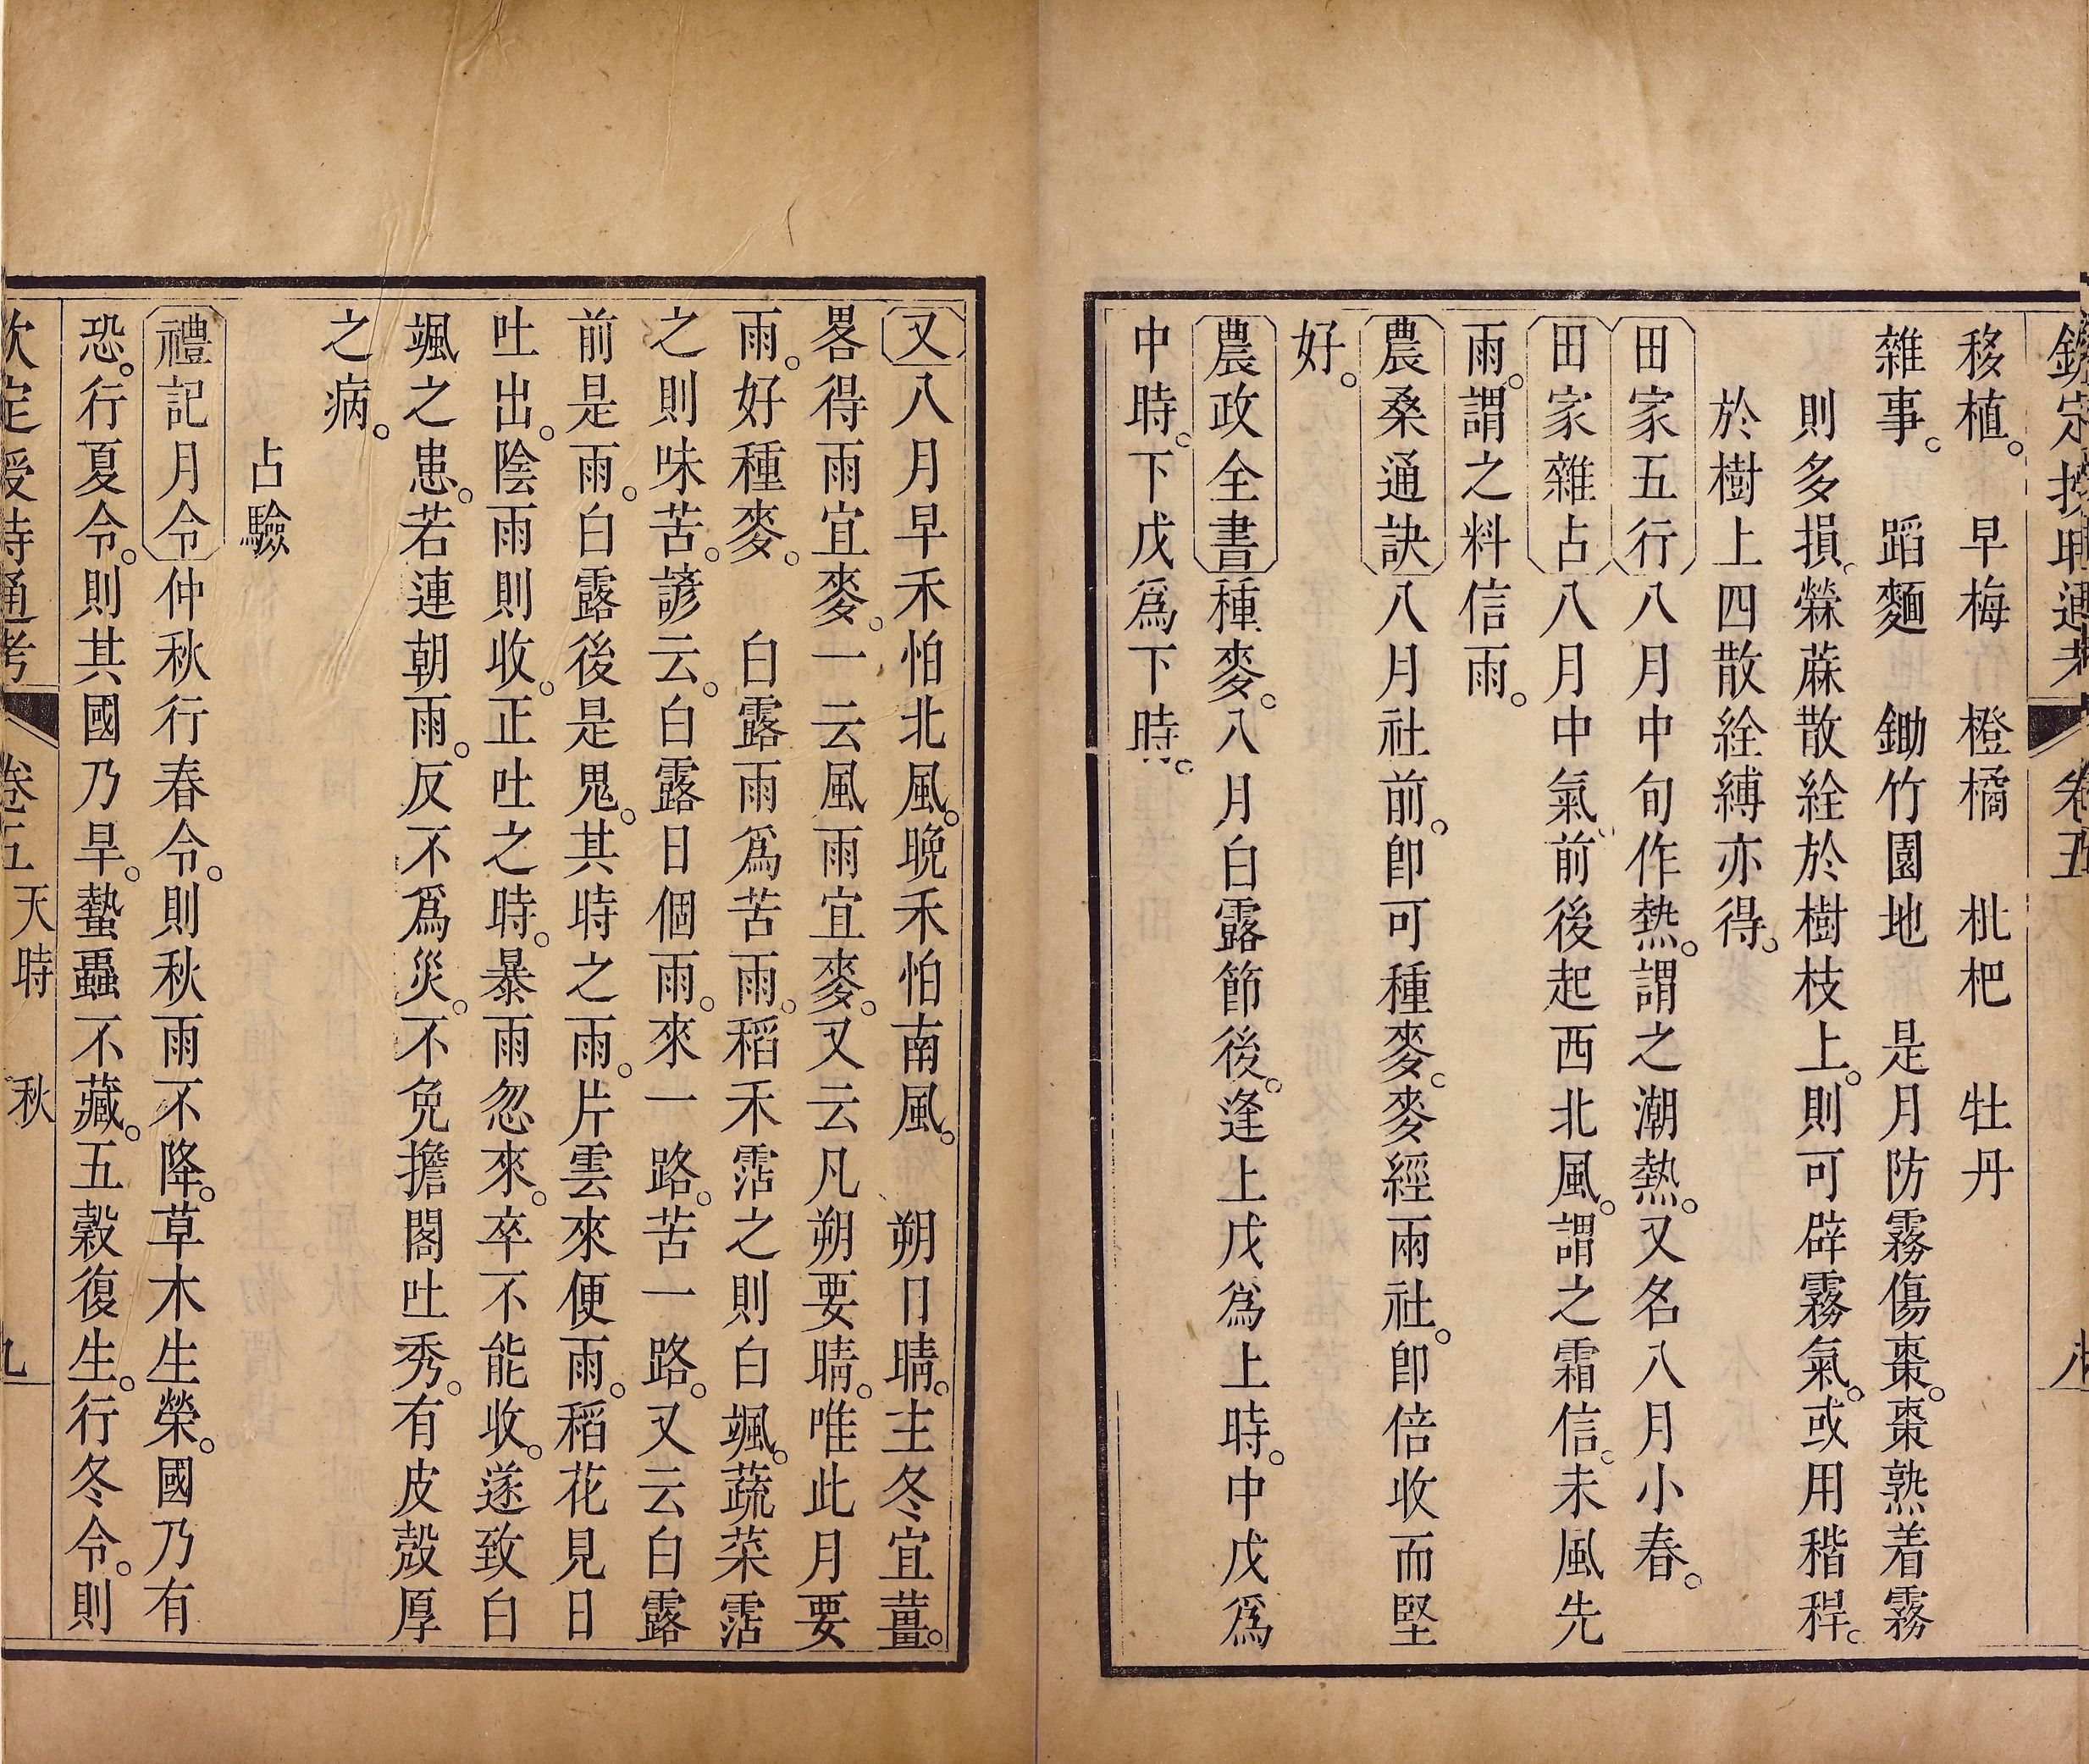 欽定授時通考 卷五 八
移植。 早梅 橙橘 枇杷 牡丹
雜事。 蹈麵 鋤竹園地 是月防霧傷棗。棗熟着霧
則多損。檾蔴散絟於樹枝上。則可辟霧氣。或用稭稈。
於樹上四散絟縛亦得。
田家五行八月中旬作熱。謂之潮熱。又名八月小春。
田家雜占八月中氣前後起西北風。謂之霜信。未風先
雨。謂之料信雨。
農桑通訣八月社前。卽可種麥。麥經兩社。卽倍收而堅
好。
農政全書種麥。八月白露節後。逢上戊爲上時。中戊爲
中時。下戊爲下時。
又八月早禾怕北風。晚禾怕南風。 朔日晴。主冬宜薑。
畧得雨宜麥。一云風雨宜麥。又云凡朔要晴。唯此月要
雨。好種麥。 白露雨爲苦雨。稻禾霑之則白颯。蔬菜霑
之則味苦。諺云。白露日個雨。來一路。苦一路。又云白露
前是雨。白露後是鬼。其時之雨。片雲來便雨。稻花見日
吐出。陰雨則收。正吐之時。暴雨忽來。卒不能收。遂致白
颯之患。若連朝雨。反不爲災。不免擔閣吐秀。有皮殼厚
之病。
占驗
禮記月令仲秋行春令。則秋雨不降。草木生榮。國乃有
恐。行夏令。則其國乃旱。蟄蟲不藏。五穀復生。行冬令。則
欽定授時通考 卷五 天時 秋 九